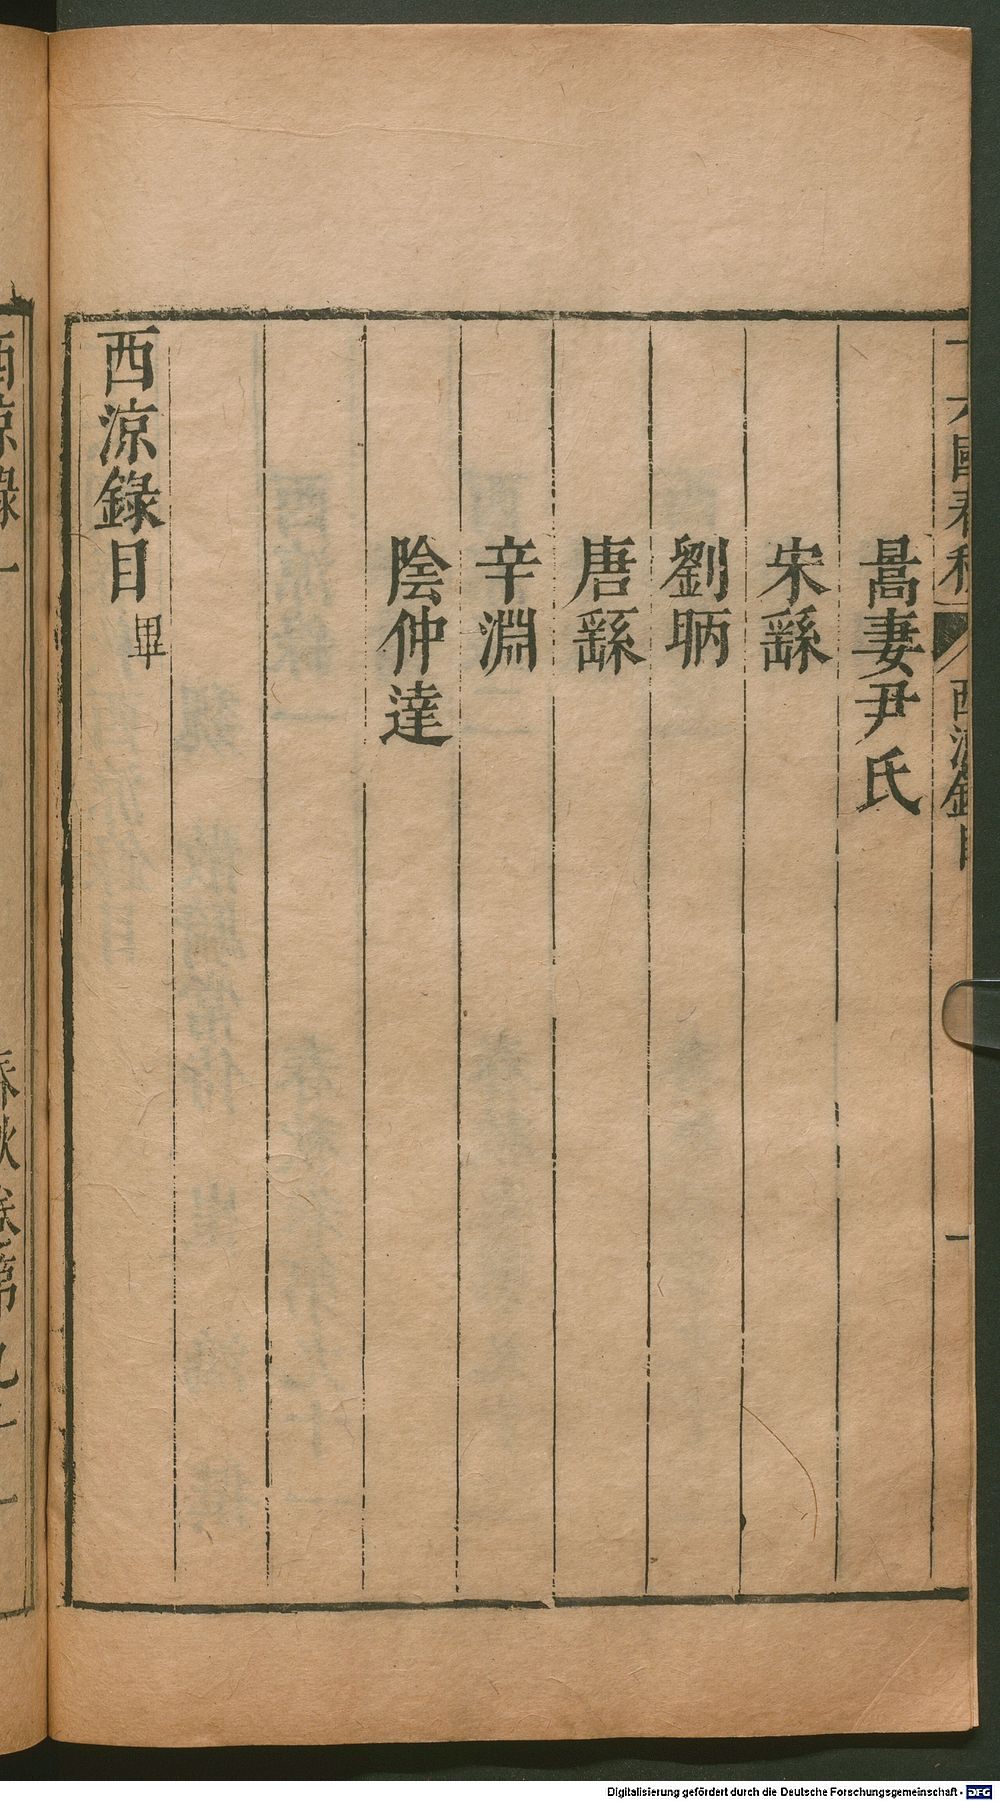 十六國春秋 西涼錄目 一
暠妻尹氏
宋繇
劉昞
唐繇
辛淵
陰仲達
西涼錄目畢
西涼錄一 春秋卷第九十一
Digitalisierung gefördert durch die Deutsche Forschungsgemeinschaft - DFG